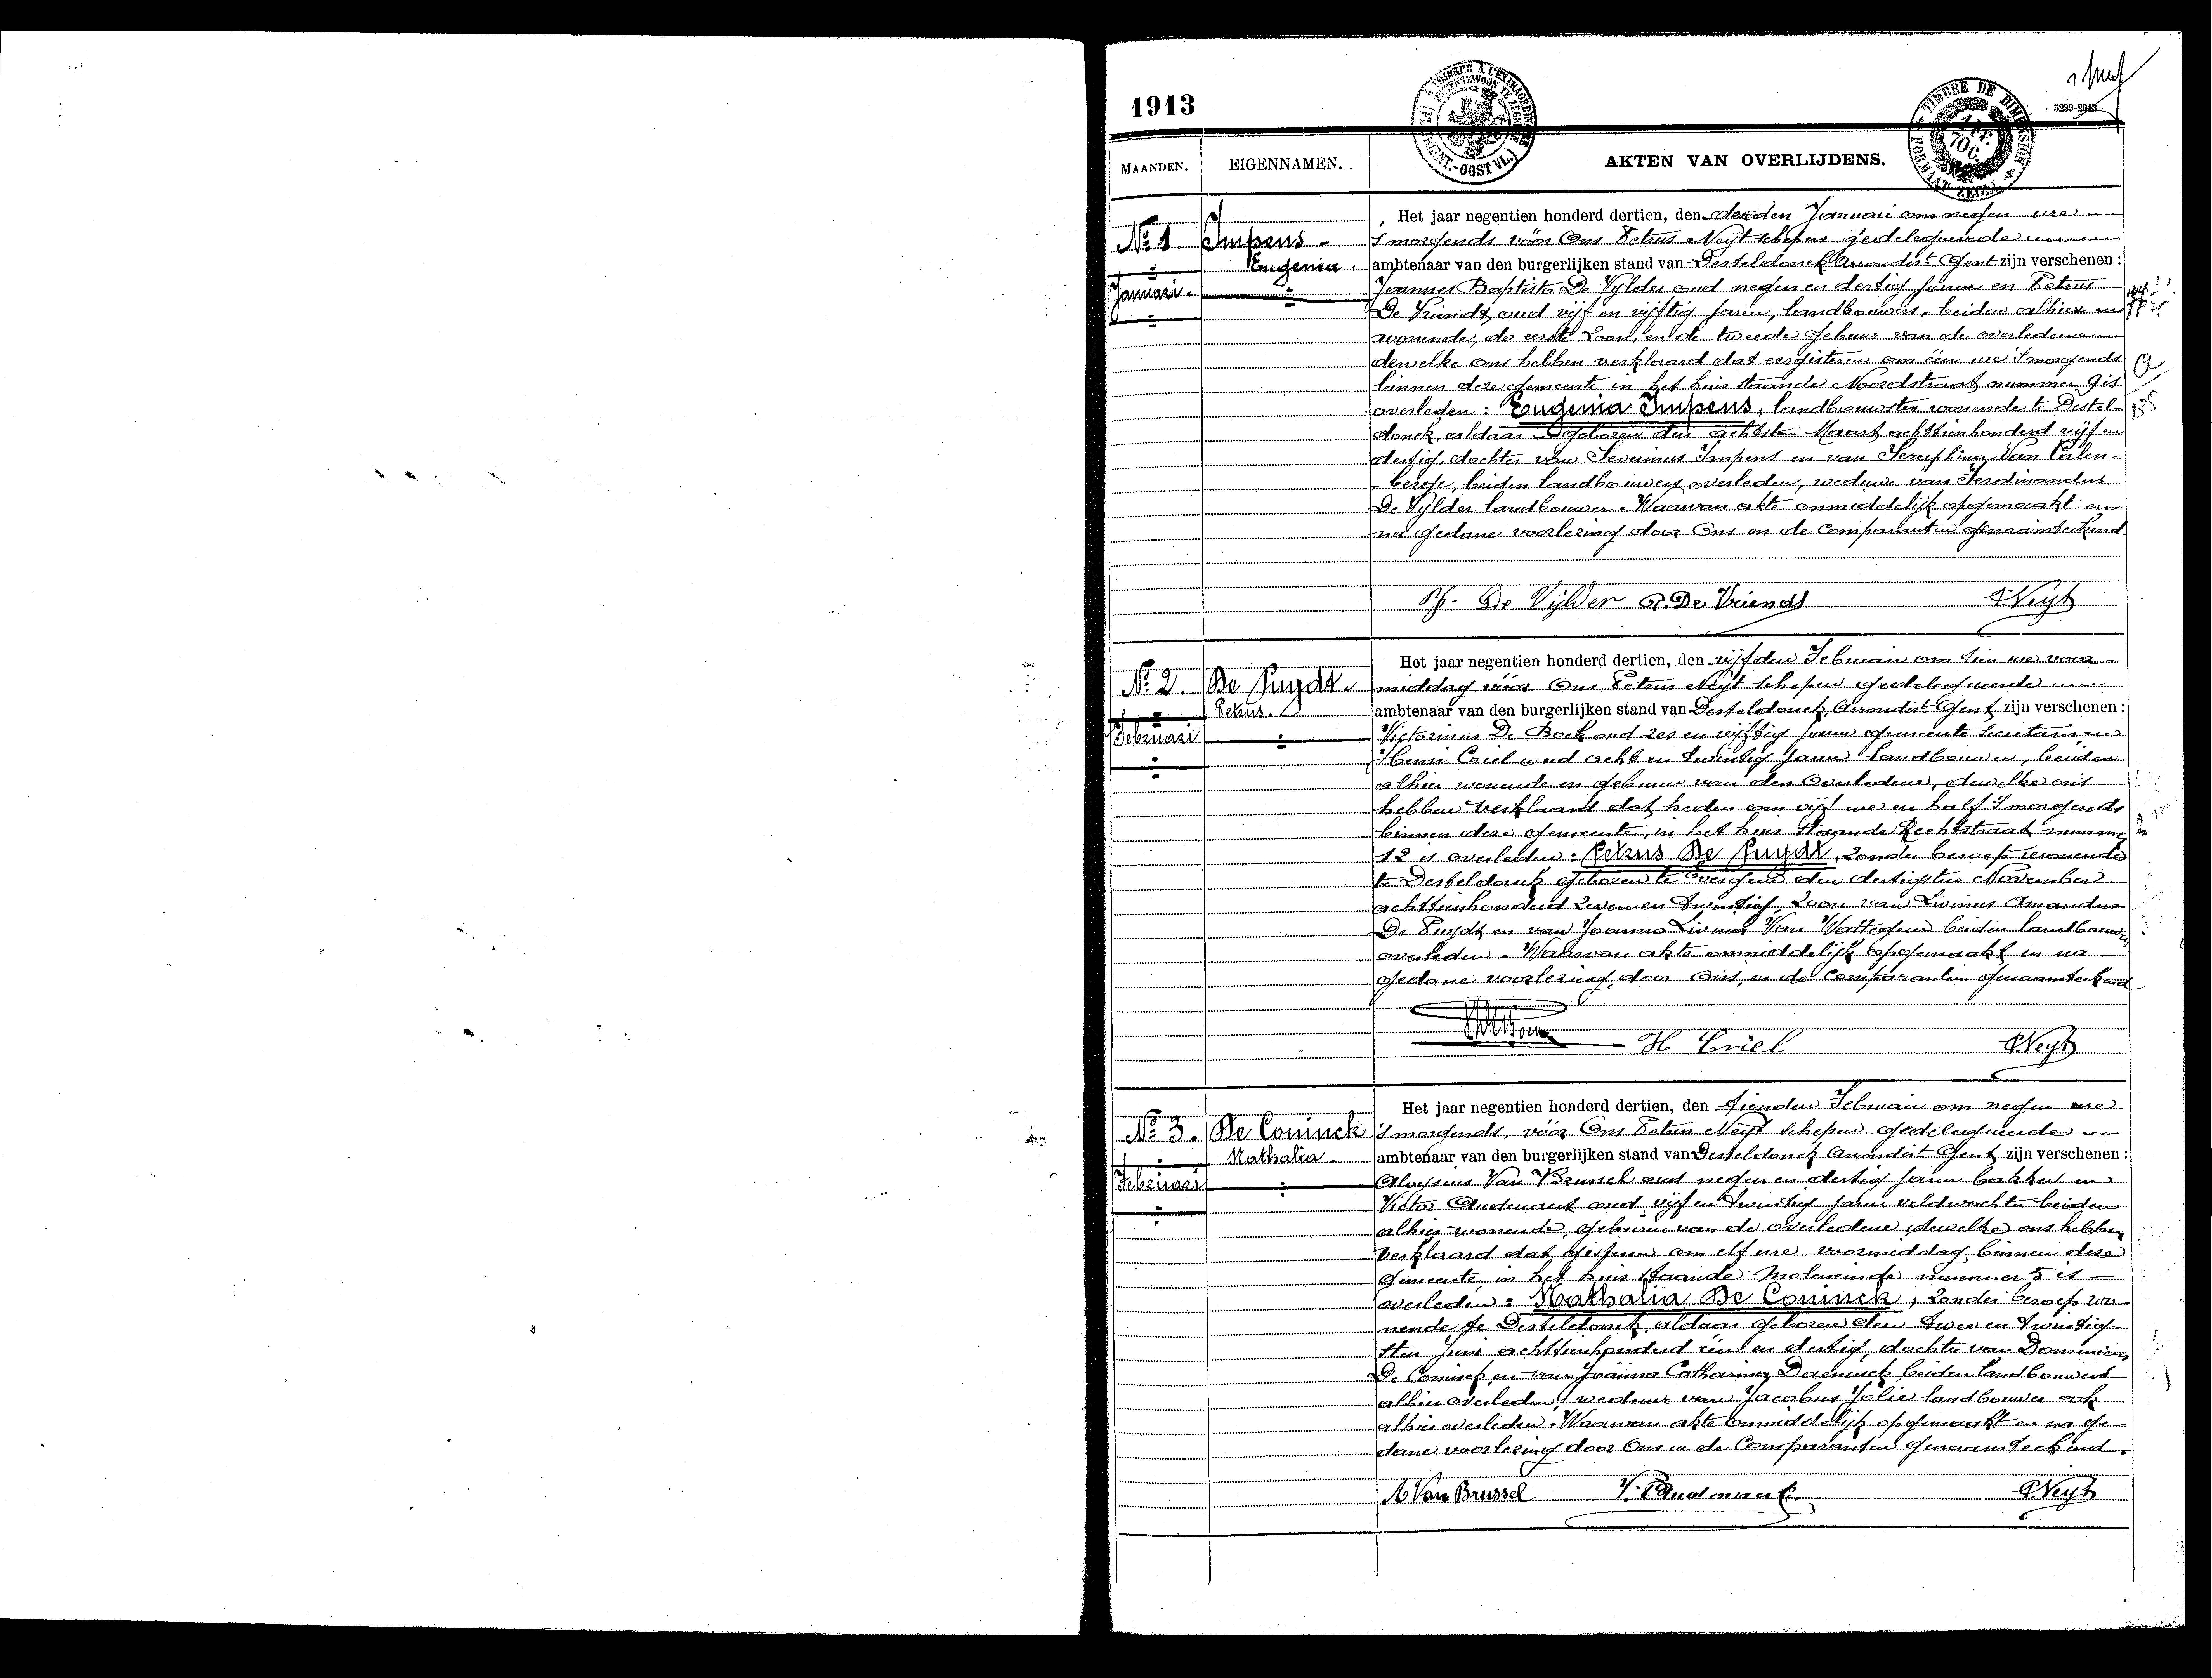 1913
5239-2043
TIMBRE DE DIMENSION
FORMAAT ZEGEL
MAANDEN.
EIGENNAMEN.
AKTEN VAN OVERLIJDENS.
No. 1
Januari.
Impens
Eugenia.
Het jaar negentien honderd dertien, den derden Januari om negen ure
's morgends vóór Ons Petrus Neyt schepen gedelegueerde
ambtenaar van den burgerlijken stand van Desteldonck Arrondist Gent zijn verschenen :
Joannes Baptista De Vylder oud negen en dertig jaren en Petrus
De Vriendt, oud vijf en vijftig jaren, landbouwers, beiden alhier
wonende, de eerste zoon, en de tweede gebuur van de overledene
dewelke ons hebben verklaard dat eergisteren om één ure 's morgends
binnen deze gemeente in het huis staande Noordstraat nummer 9 is
overleden : Eugenia Impens, landbouwster wonende te Destel-
donck, aldaar geboren den achtste Maart achttienhonderd vijf en
dertig, dochter van Severinus Impens en van Seraphina Van Calen-
berge, beiden landbouwers overleden, weduwe van Ferdinandus
De Vylder landbouwer. Waarvan akte onmiddelijk opgemaakt en
na gedane voorlezing door Ons en de Comparanten genaamteekend.
De Vylder P. De Vriendt P. Neyt
No. 2.
Februari
De Puydt.
Petrus.
Het jaar negentien honderd dertien, den vijfden Februari om tien ure voor-
middag vóór Ons Petrus Neyt schepen gedelegueerde
ambtenaar van den burgerlijken stand van Desteldonck, Arrondist Gent zijn verschenen :
Victorinus De Bock oud zes en vijftig jaren gemeente secretaris en
Henri Criel oud acht en twintig jaren landbouwer, beiden
alhier wonende en geburen van den Overledene, dewelke ons
hebben verklaard dat heden om vijf ure en half 's morgends
binnen deze gemeente, in het huis staande Rechtstraat nummer
12 is overleden : Petrus De Puydt, zonder beroep wonende
te Desteldonck geboren te Evergem den dertigsten November
achttienhonderd zeven en twintig, zoon van Livinus Amandus
De Puydt en van Joanna Livina Van Wattegem beiden landbouwers
overleden. Waarvan akte onmiddelijk opgemaakt en na
gedane voorlezing, door Ons, en de Comparanten genaamteekend
H Criel P. Neyt
No. 3.
Februari
De Coninck
Nathalia.
Het jaar negentien honderd dertien, den tienden Februari om negen ure
's morgends, vóór Ons Petrus Neyt schepen gedelegueerde
ambtenaar van den burgerlijken stand van Desteldonck Arrondist Gent zijn verschenen :
Aloysius Van Brussel oud negen en dertig jaren bakker en
Victor Oudenaut oud vijf en twintig jaren veldwachter beiden
alhier wonende, geburen van de overledene, dewelke ons hebben
verklaard dat gisteren om elf ure voormiddag binnen deze
gemeente in het huis staande Moleneinde nummer 5 is
overleden : Nathalia De Coninck, zonder beroep wo-
nende te Desteldonck, aldaar geboren den twee en twintig-
sten Juni achttienhonderd één en dertig, dochter van Dominicus
De Coninck en van Joanna Catharina Daeninck beiden landbouwers
alhier overleden, weduwe van Jacobus Jolie landbouwer ook
alhier overleden. Waarvan akte onmiddelijk opgemaakt en na ge-
dane voorlezing door Ons en de Comparanten genaamteekend.
A Van Brussel P. Neyt